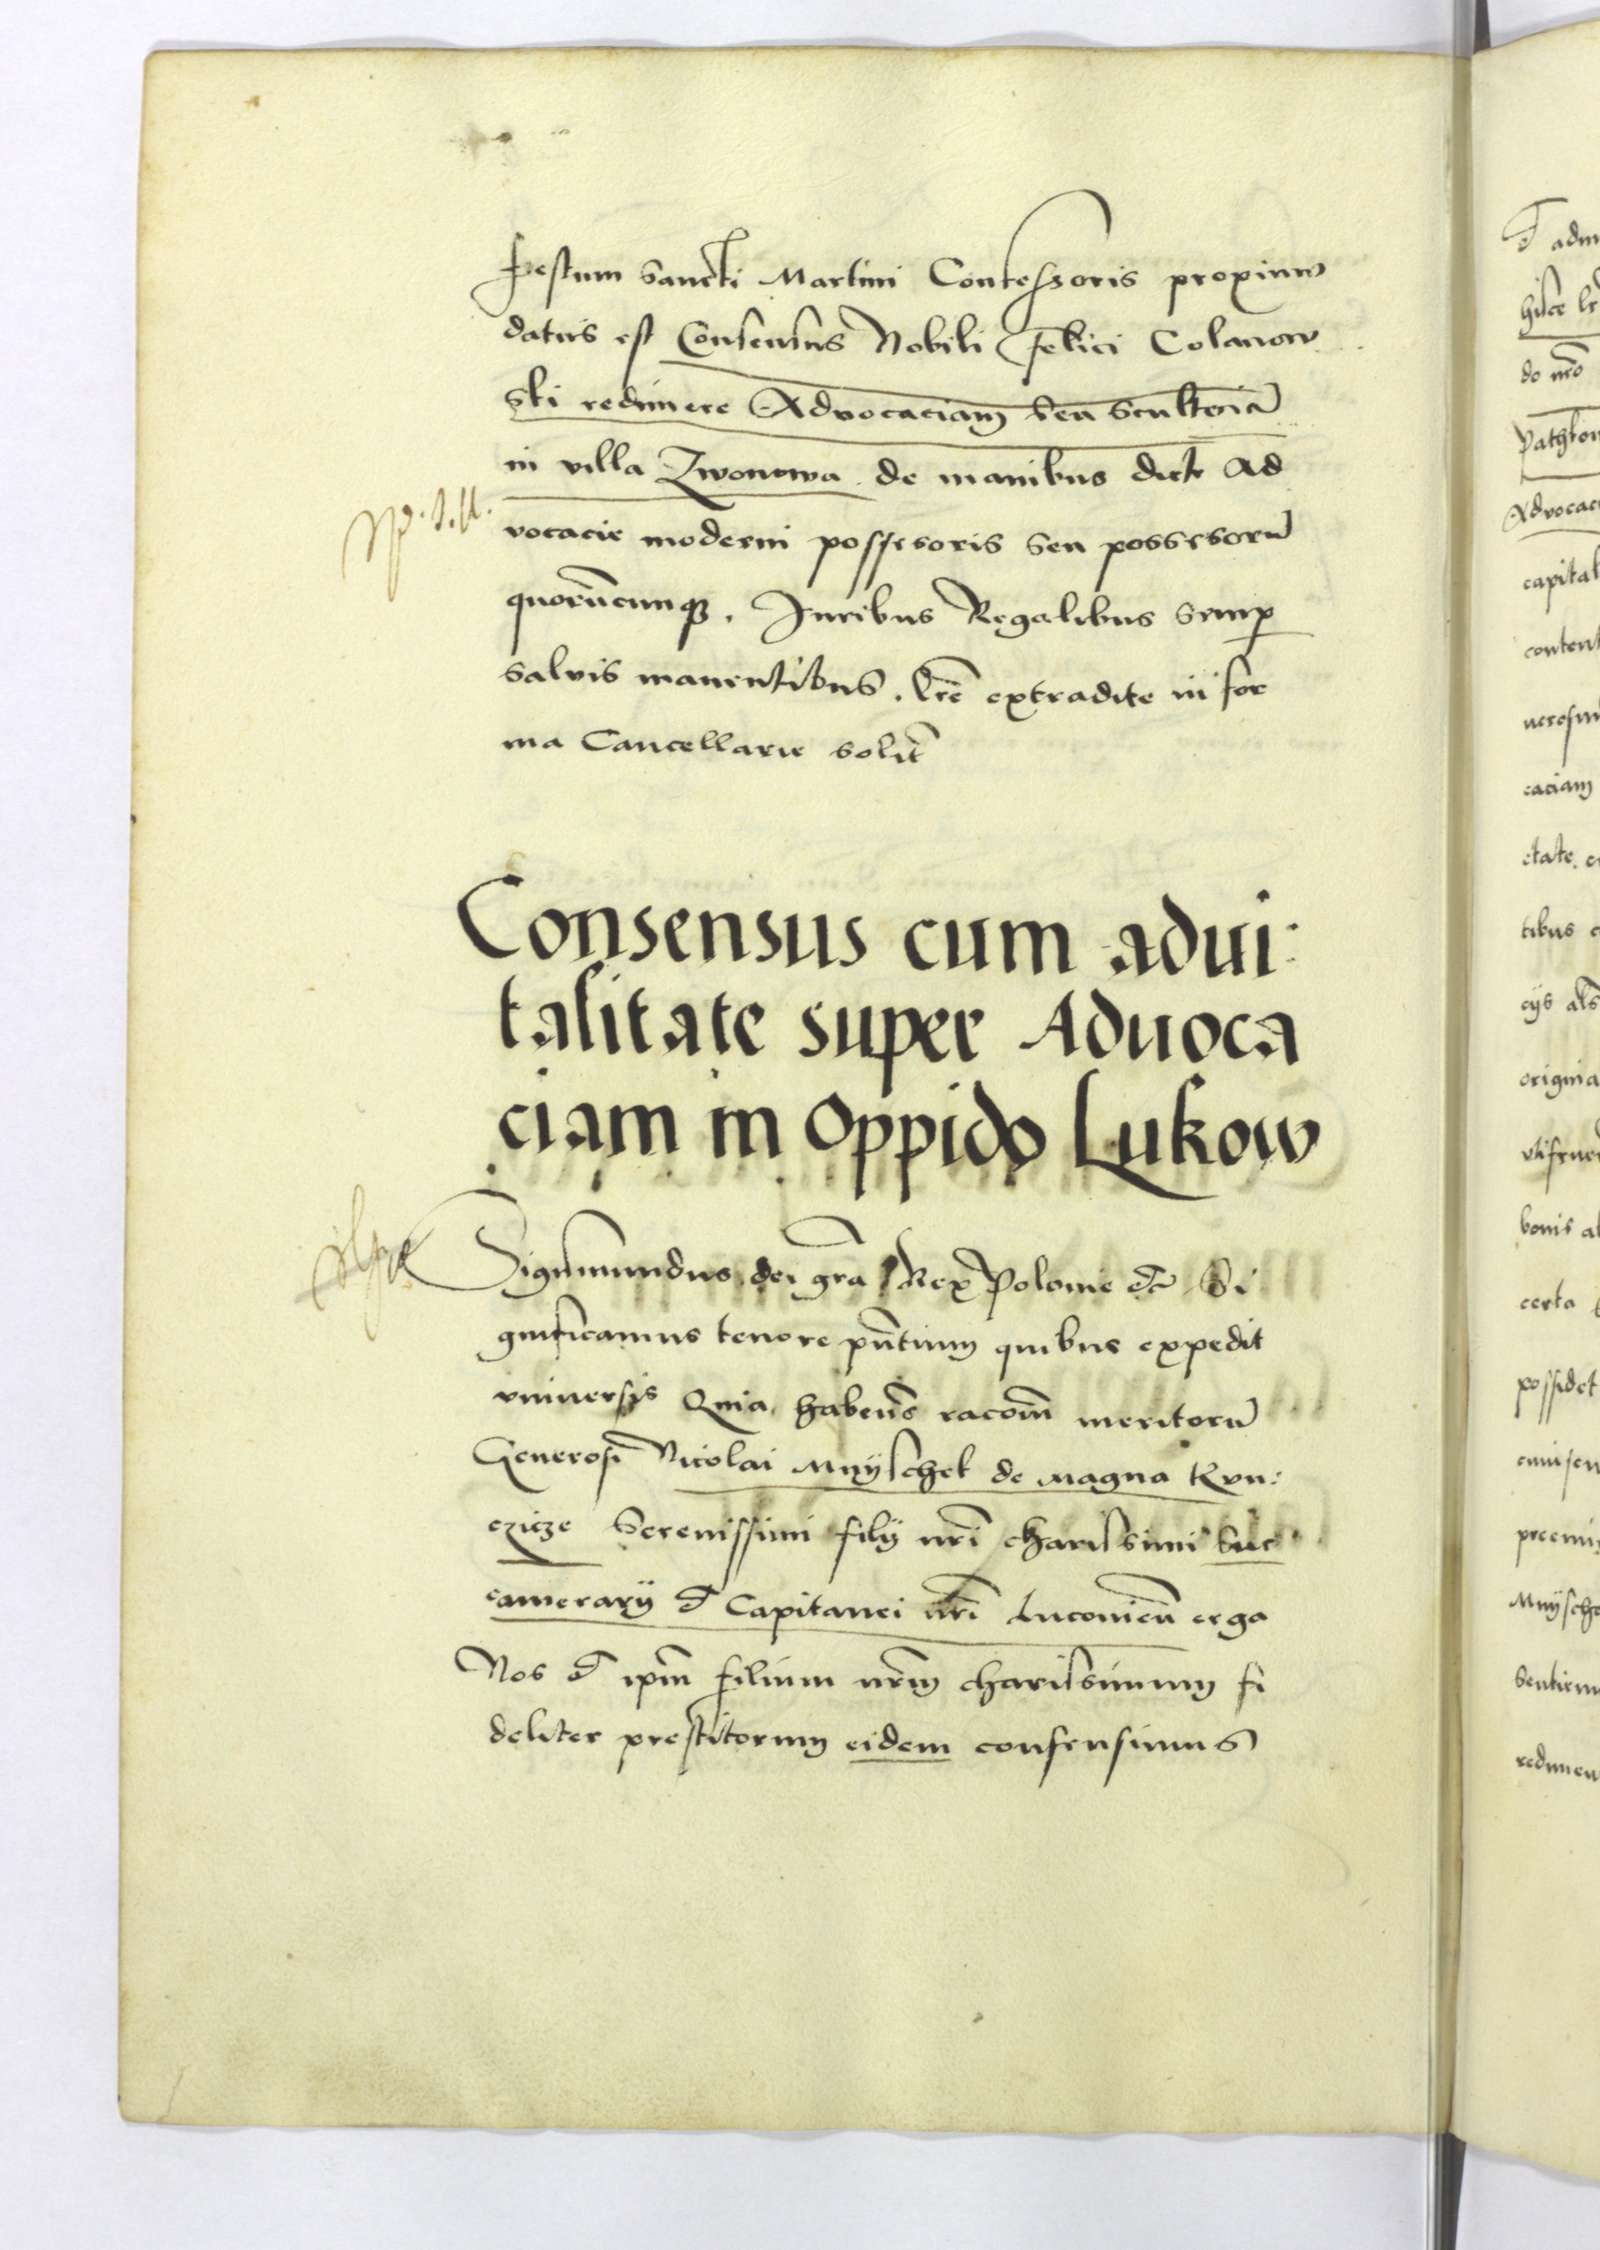 Festum Sancti Martini Confessoris proximum
datus est Consensus Nobili Felici Colanow
ski redimere Advocaciam seu scultecia
in villa Zwonowa de manibus dicte Ad
vocacie moderni possesoris seu possesorū
quorūcunqз. Iuribus Regalibus semp
salvis manentibus. Lrē extradite in for
ma Cancellarie solit
Consensus cum advi:
talitate super Advoca
ciam in Oppido Lukow
Sigismundus dei gra Rex Polonie etc Si
gnificamus tenore pñtium quibus expedit
universis Quia habeñs racoēm meritorū
Generosi Nicolai Mnyschek de Magna Kun:
czicze Serenissimi filij nri charissimi suc
camerarij et Capitanei nri Luconieñ erga
Nos et ipm filium nrm charissimum fi
deliter prestitorum eidem consensimus
et adm
hisce lr
do nro
Advocaci
capital
content
caciam
etate. e
tibus
cijs als
origina
bonis al
certa
possidet
Mnysche
redimen